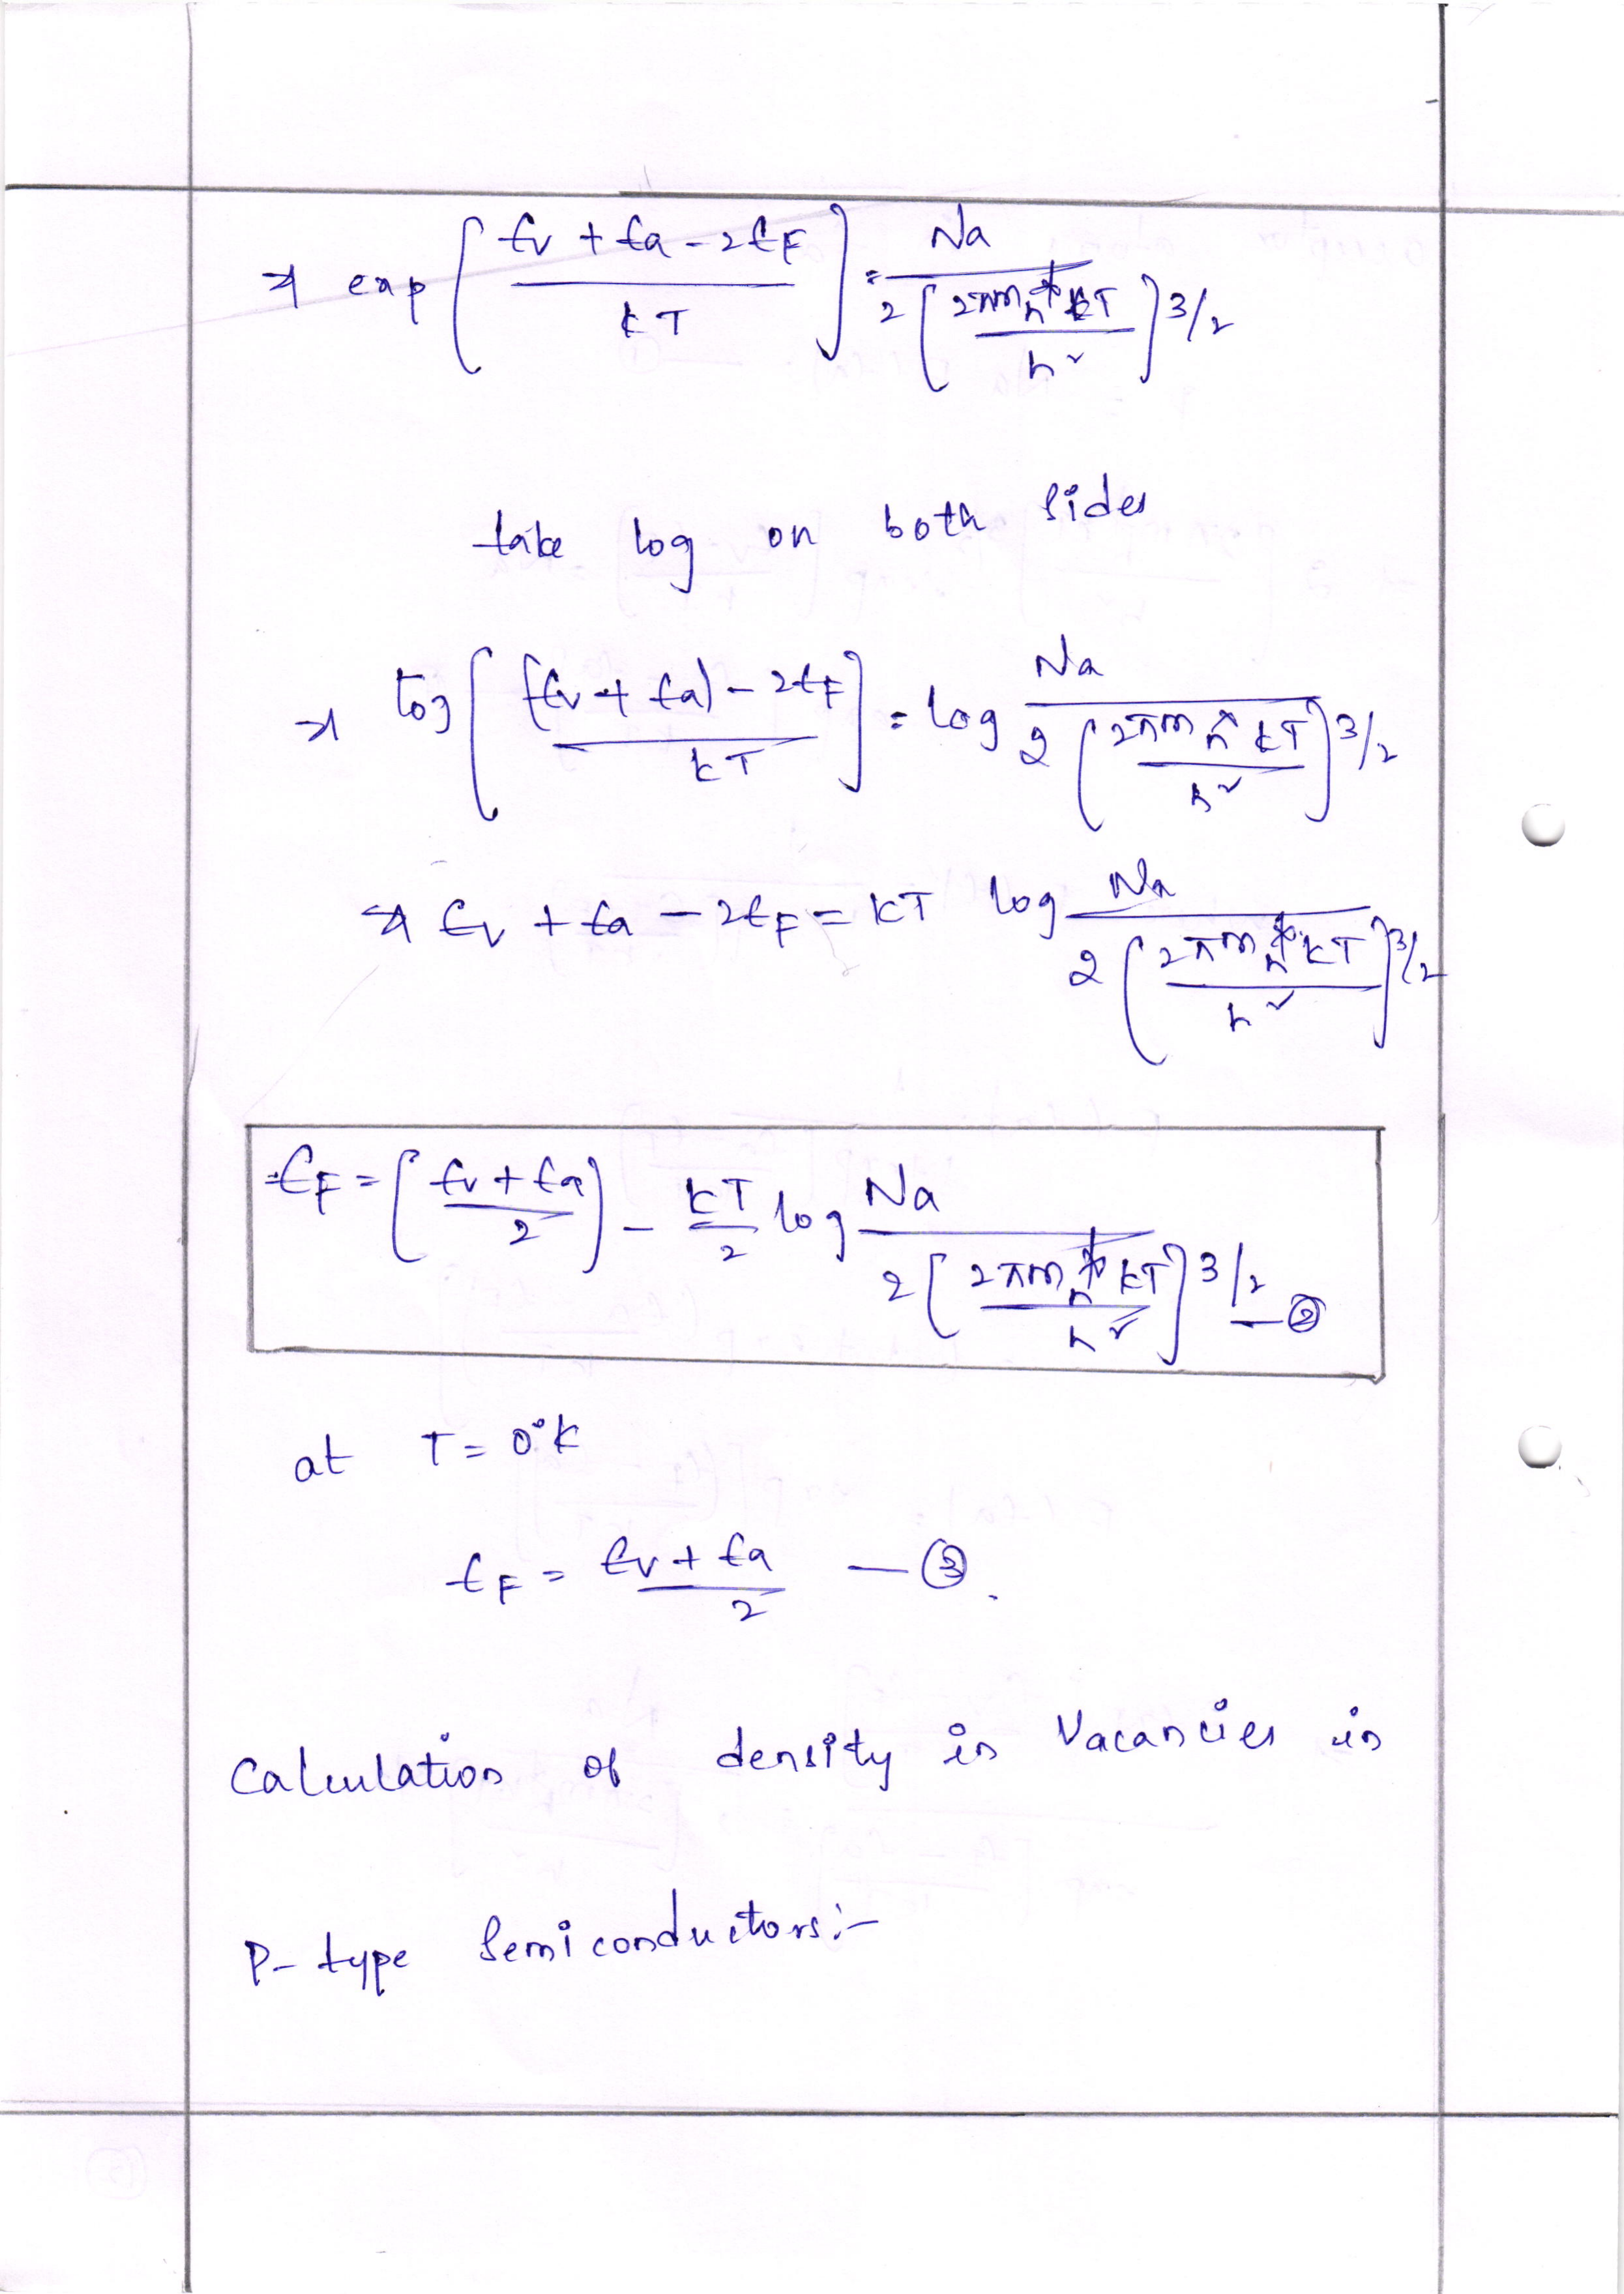 ⇒ exp [ (Ev + Ea - 2EF) / kT ] = Na / 2 [ 2πm_h* kT / h² ]^3/2
take log on both sides
⇒ log [ ((Ev + Ea) - 2EF) / kT ] = log Na / 2 [ 2πm_h* kT / h² ]^3/2
⇒ Ev + Ea - 2EF = kT log Na / 2 [ 2πm_h* kT / h² ]^3/2
EF = [ (Ev + Ea) / 2 ] - kT/2 log Na / 2 [ 2πm_h* kT / h² ]^3/2 — ②
at T = 0°k
EF = (Ev + Ea) / 2 — ③.
Calculation of density in Vacancies in
P- type Semiconductors:-